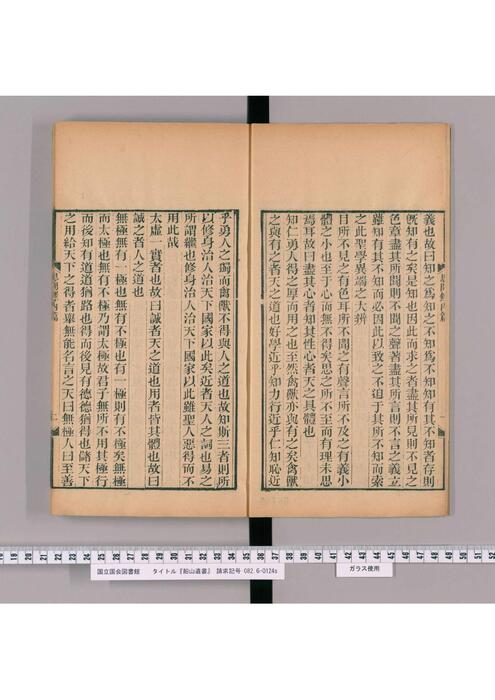 思問錄內篇
一
義也故曰知之為知之不知為不知知有其不知者存則
旣知有之矣是知也因此而求之者盡其所見則不見之
色章盡其所聞則不聞之聲著盡其所言則不言之義立
雖知有其不知而必因此以致之不迫于其所不知而索
之此聖學異端之大辨
目所不見之有色耳所不聞之有聲言所不及之有義小
體之小也至于心而無不得矣思之所不至而有理未思
焉耳故曰盡其心者知其性心者天之具體也
知仁勇人得之厚而用之也至然禽獸亦與有之矣禽獸
之與有之者天之道也好學近乎知力行近乎仁知恥近
乎勇人之獨而禽獸不得與人之道也故知斯三者則所
以修身治人治天下國家以此矣近者天人之詞也易之
所謂繼也修身治人治天下國家以此雖聖人惡得而不
用此哉
太虛一實者也故曰誠者天之道也用者皆其體也故曰
誠之者人之道也
無極無有一極也無有不極也有一極則有不極矣無極
而太極也無有不極乃謂太極故君子無所不用其極行
而後知有道道猶路也得而後見有德德猶得也儲天下
之用給天下之得者舉無能名言之天曰無極人曰至善
思問錄內篇
二
19 18 17 16 15 14 13 12 11 10 9 8 7 6 5 4 3 2 1
27 28 29 30 31 32 33 34 35 36 37 38 39 40 41 42 43 44 45 46 47 48 49 50 51 52
国立国会図書館 タイトル『船山遺書』 請求記号 082.6-0124s
ガラス使用